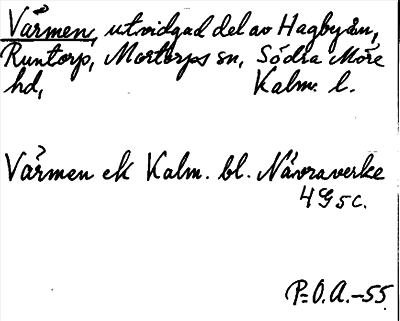 Värmen, utvidgad del av Hagbyån,
Runtorp, Mortorps sn, Södra Möre
hd, Kalm. l.
Värmen ek Kalm. bl. Nävraverke
4 G 5 c.
P.O.A.-55